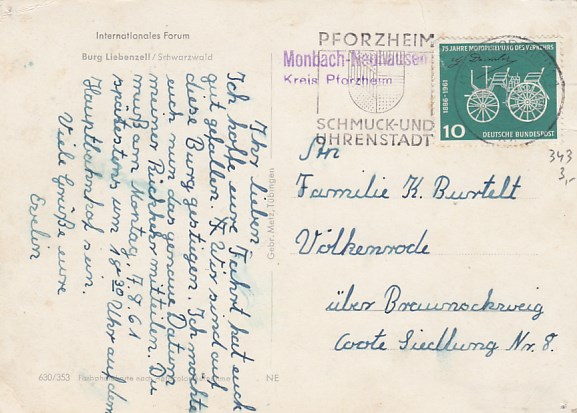 Internationales Forum
Burg Liebenzell / Schwarzwald
Ihr lieben
Ich hoffe eure Fahrt hat euch
gut gefallen. Wir sind auf
diese Burg gestiegen. Ich möchte
euch nun das genaue Datum
meiner Rückkehr mitteilen. Du
mußt am Montag, 7.8.61
spätestens um 18 30 Uhr auf dem
Hauptbahnhof sein.
Viele Grüße eure
Evelin
630/353
NE
Gebr. Metz, Tübingen
PFORZHEIM
SCHMUCK-UND
UHRENSTADT
Monbach-Neuhausen
Kreis Pforzheim
75 JAHRE MOTORISIERUNG DES VERKEHRS
1886-1961
10 DEUTSCHE BUNDESPOST
343
3,-
An
Familie K. Burtelt
Völkenrode
über Braunschweig
Siedlung Nr. 8.